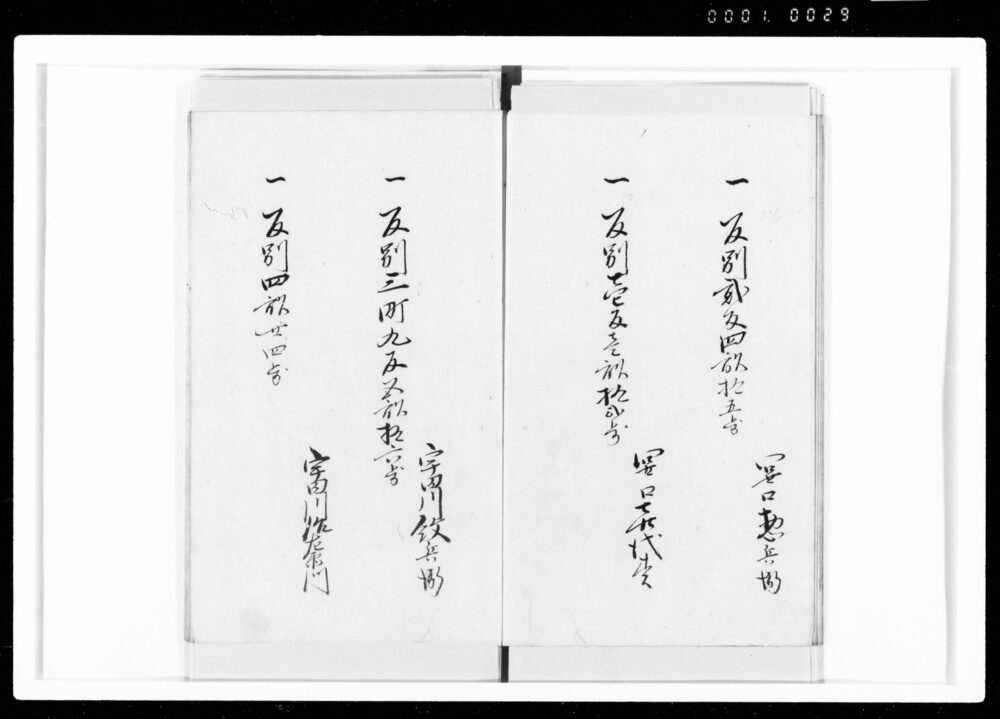 0001. 0029
一 反別弐反四畝拾五歩
関口惣兵衛
一 反別壱反壱畝拾弐歩
関口喜代
一 反別三町九反五畝拾六歩
宇田川紋兵衛
一 反別四畝廿四歩
宇田川治左衛門